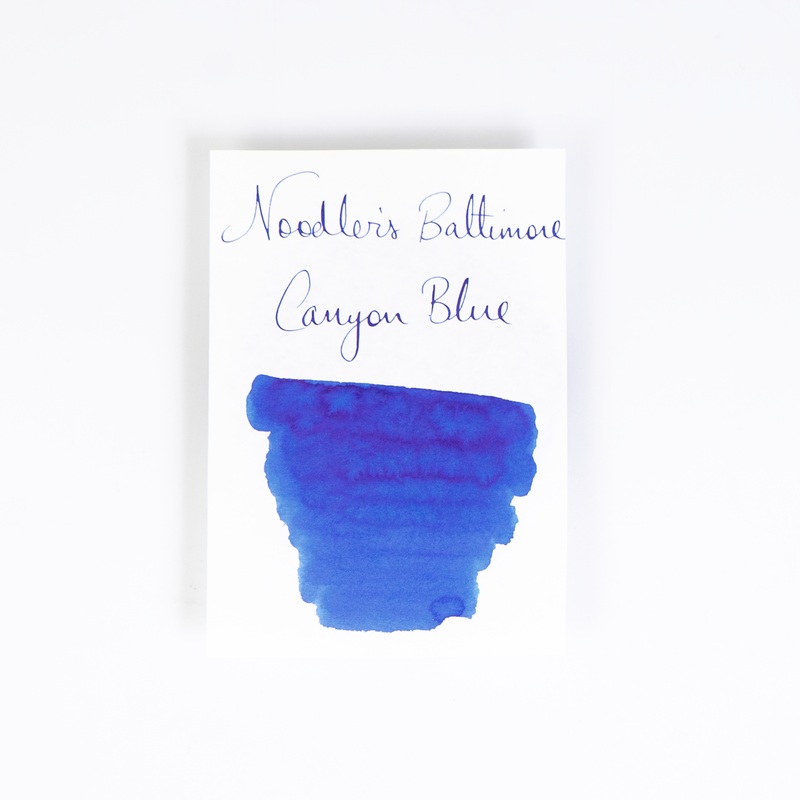 Noodler's Baltimore
Canyon Blue